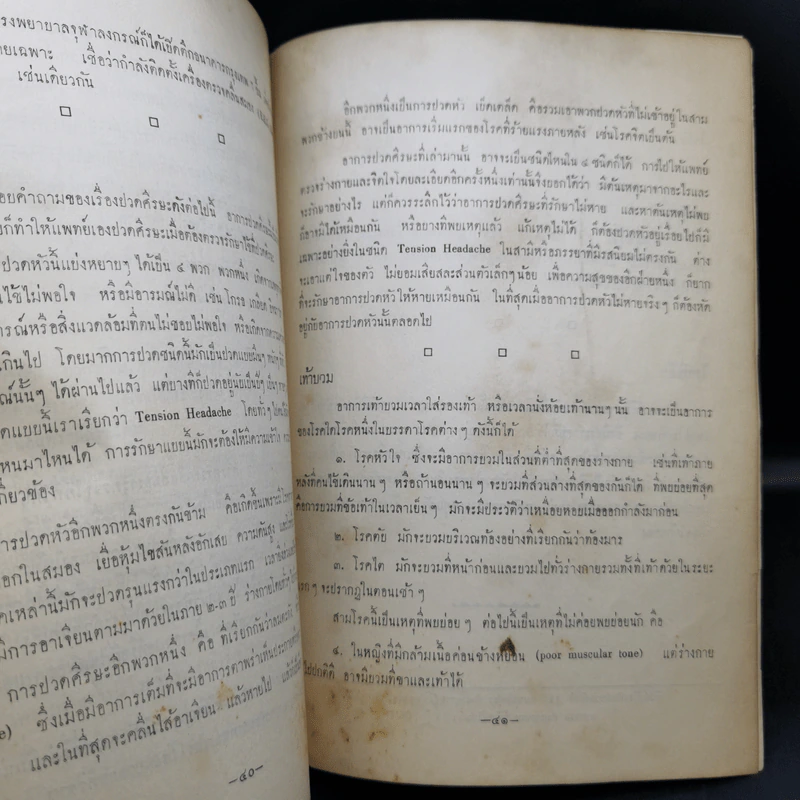 รงพยาบาลจุฬาลงกรณ์ก็ได้เปิดตึกธนาคารกรุงเทพ
ายเฉพาะ เชื่อว่ากำลังติดตั้งเครื่องตรวจคลื่นสมอง
เช่นเดียวกัน
อยคำถามของเรื่องปวดศีรษะดังต่อไปนี้
งก็ทำให้แพทย์เองปวดศีรษะเมื่อต้องตรวจรักษา
ปวดหัวนี้แบ่งหยาบๆ ได้เป็น ๔ พวก พวกหนึ่ง
นไข้ไม่พอใจ หรือมีอารมณ์ไม่ดี เช่น โกรธ เกลียด
รณ์หรือสิ่งแวดล้อมที่ตนไม่ชอบไม่พอใจ
เกินไป โดยมากการปวดชนิดนี้มักเป็นปวดแบบมึนๆ
ณ์นั้นๆ ได้ผ่านไปแล้ว แต่บางทีก็ปวดอยู่นับเป็นปีๆ
ดแบบนี้เราเรียกว่า Tension Headache โดยทั่วๆ
หนมาไหนได้ การรักษาแบบนี้มักจะต้องให้มีความเข้าใจ
กี่ยวข้อง
การปวดหัวอีกพวกหนึ่งตรงกันข้าม
อกในสมอง เยื่อหุ้มไขสันหลังอักเสบ ความดันสูง
ดเหล่านี้มักจะปวดรุนแรงกว่าในประเภทแรก
มีการอาเจียนตามมาด้วยในภาย ๒-๓ ปี
การปวดศีรษะอีกพวกหนึ่ง คือ ที่เรียกกันว่า
e) ซึ่งเมื่อมีอาการเต็มที่จะมีอาการตาพร่า
และในที่สุดจะคลื่นไส้อาเจียน แล้วหายไป
—๔๐—
อีกพวกหนึ่งเป็นการปวดหัว เบ็ดเตล็ด คือรวมเอาพวกปวดหัวที่ไม่เข้าอยู่ในสาม
พวกข้างบนนี้ อาจเป็นอาการเริ่มแรกของโรคที่ร้ายแรงภายหลัง เช่นโรคจิตเป็นต้น
อาการปวดศีรษะที่เล่ามานั้น อาจจะเป็นชนิดไหนใน ๔ ชนิดก็ได้ การไปให้แพทย์
ตรวจร่างกายและจิตใจโดยละเอียดอีกครั้งหนึ่งเท่านั้นจึงบอกได้ว่า มีต้นเหตุมาจากอะไรและ
จะรักษาอย่างไร แต่ก็ควรระลึกไว้ว่าอาการปวดศีรษะที่รักษาไม่หาย และหาต้นเหตุไม่พบ
ก็อาจมีได้เหมือนกัน หรือบางทีพบเหตุแล้ว แก้เหตุไม่ได้ ก็ต้องปวดหัวอยู่เรื่อยไปก็มี
เฉพาะอย่างยิ่งในชนิด Tension Headache ในสามีหรือภรรยาที่มีรสนิยมไม่ตรงกัน ต่าง
จะเอาแต่ใจของตัว ไม่ยอมเสียสละส่วนตัวเล็กๆน้อย เพื่อความสุขของอีกฝ่ายหนึ่ง ก็ยาก
ที่จะรักษาอาการปวดหัวให้หายเหมือนกัน ในที่สุดเมื่ออาการปวดหัวไม่หายจริงๆ ก็ต้องหัด
อยู่กับอาการปวดหัวนั้นตลอดไป
เท้าบวม
อาการเท้าบวมเวลาใส่รองเท้า หรือเวลานั่งห้อยเท้านานๆ นั้น อาจจะเป็นอาการ
ของโรคใดโรคหนึ่งในบรรดาโรคต่างๆ ดังนี้ก็ได้
๑. โรคหัวใจ ซึ่งจะมีอาการบวมในส่วนที่ต่ำที่สุดของร่างกาย เช่นที่เท้าภาย
หลังที่คนไข้เดินนานๆ หรือถ้านอนนานๆ จะบวมที่ส่วนล่างที่สุดของก้นก็ได้ ที่พบบ่อยที่สุด
คือการบวมที่ข้อเท้าในเวลาเย็นๆ มักจะมีประวัติว่าเหนื่อยหอบเมื่อออกกำลังมาก่อน
๒. โรคตับ มักจะบวมบริเวณท้องอย่างที่เรียกกันว่าท้องมาร
๓. โรคไต มักจะบวมที่หน้าก่อนและบวมไปทั่วร่างกายรวมทั้งที่เท้าด้วยในระยะ
แรกๆ จะปรากฏในตอนเช้าๆ
สามโรคนี้เป็นเหตุที่พบบ่อยๆ ต่อไปนี้เป็นเหตุที่ไม่ค่อยพบบ่อยนัก คือ
๔. ในหญิงที่มีกล้ามเนื้อค่อนข้างหย่อน (poor muscular tone) แต่ร่างกาย
ไปปกติดี อาจมีบวมที่ขาและเท้าได้
—๔๑—